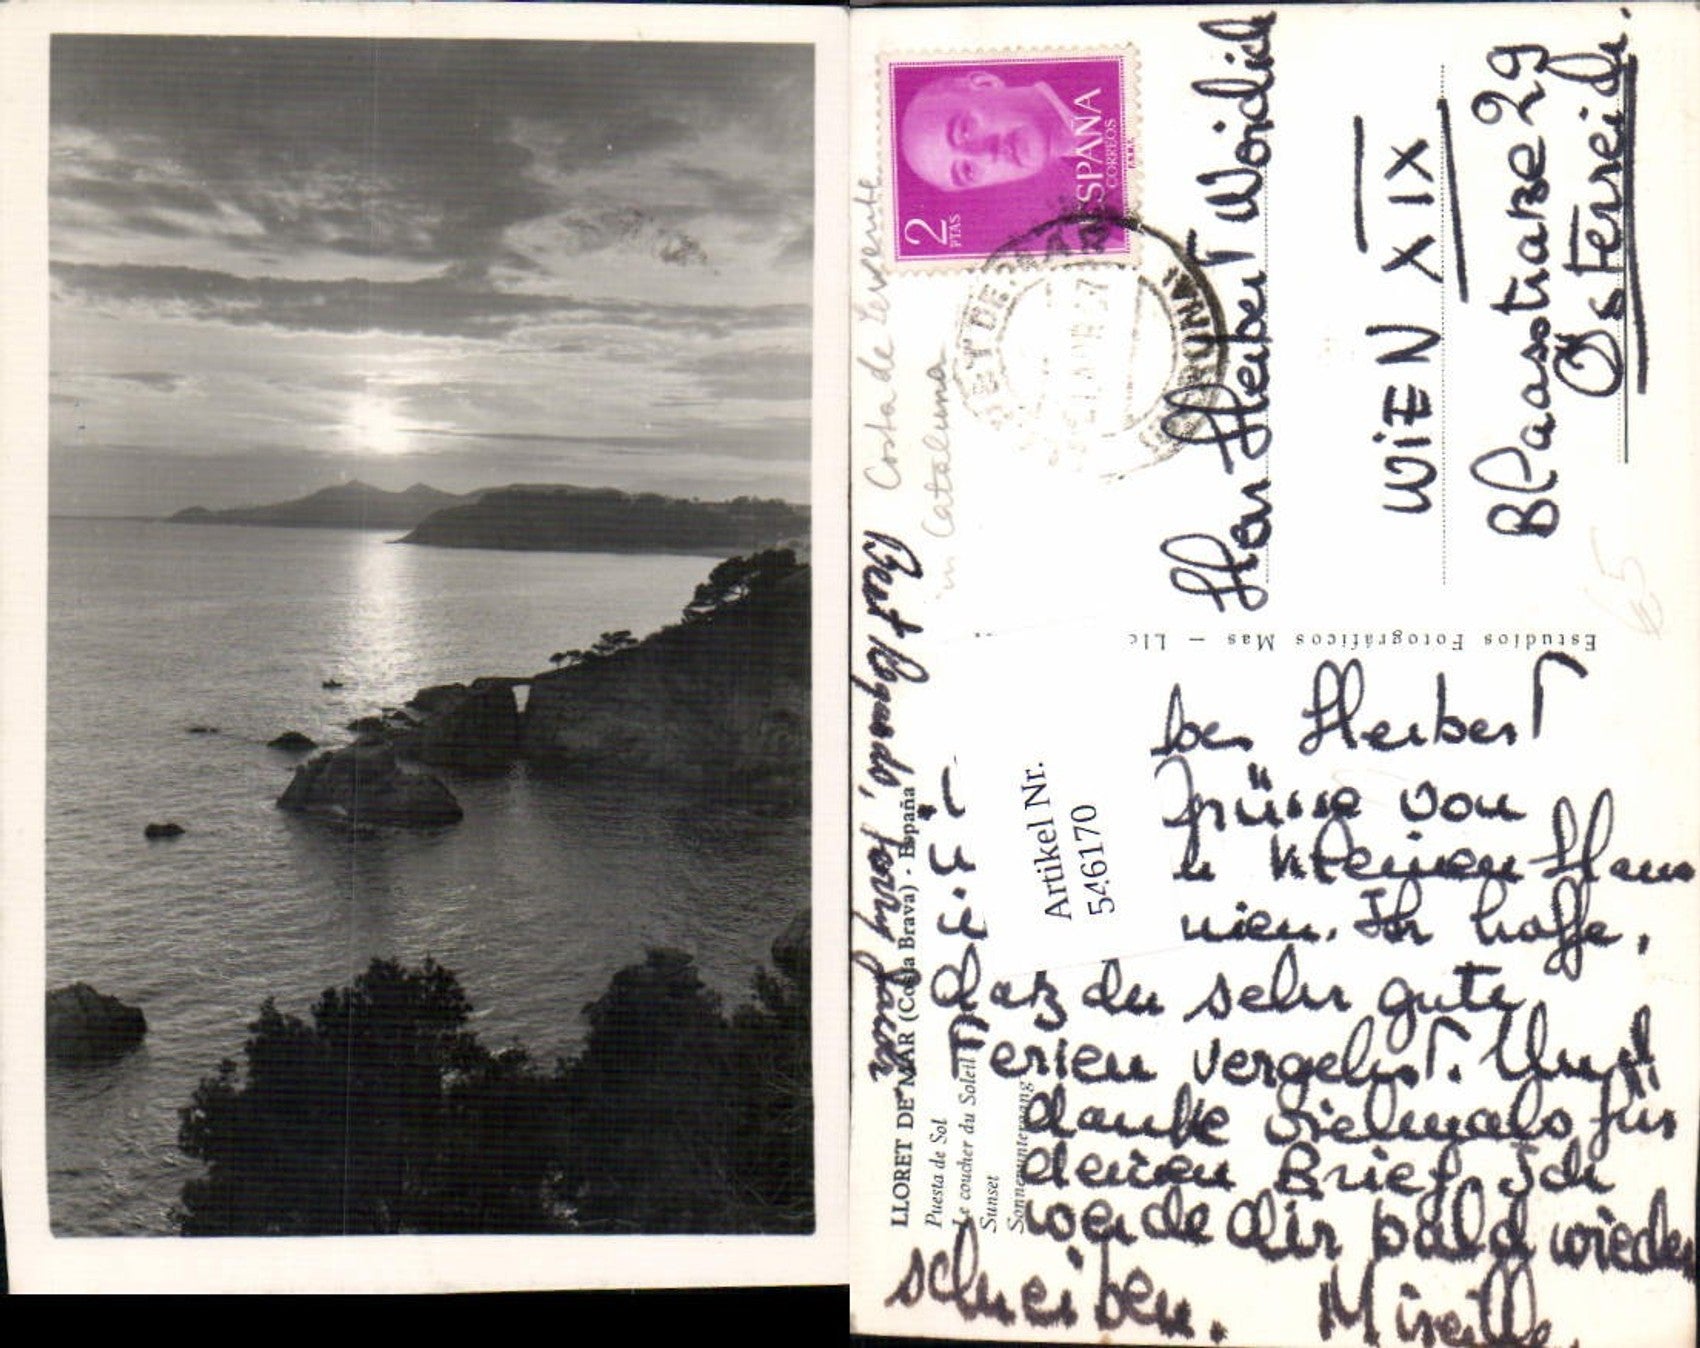 2
PTAS
ESPAÑA
CORREOS
F.N.M.T.
Costa de
in Cataluna
Herr Herbert Woidich
WIEN XIX
Blaasstraße 29
Österreich
65
Estudios Fotográficos Mas - Llo
Artikel Nr.
546170
LLORET DE MAR (Costa Brava) - España
Puesta de Sol
Le coucher du Soleil
Sunset
Sonnenuntergang
Best Regards,
ber Herbert
Grüsse von
kleinen Haus
nien. Ihr hoffe,
daß du sehr gute
Ferien vergehst. Und
danke vielmals für
deinen Brief. Ich
werde dir bald wieder
schreiben. Mireille.